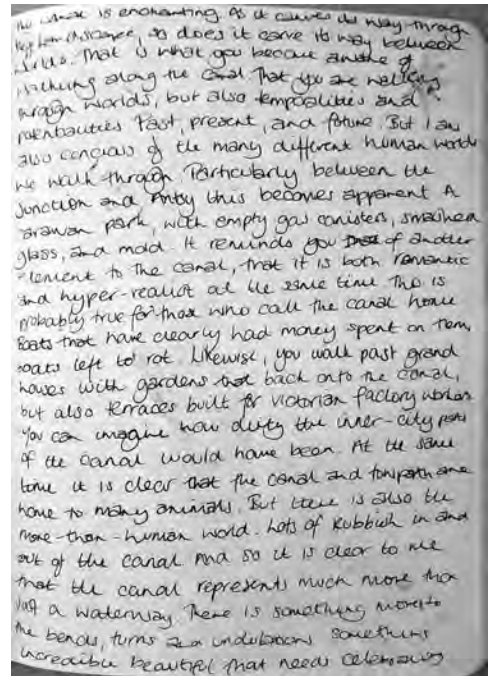 is enchanting. As it carves its way through
distance, so does it carve its way between
worlds. That is what you become aware of
walking along the canal That you are walking
through worlds, but also temporalities and
potentialities Past, present, and future. But I am
also concious of the many different human worlds
we walk through Particularly between the
Junction and this becomes apparent A
park, with empty gas canisters, smashed
glass, and mold. It reminds you of another
element to the canal, that it is both romantic
and hyper-realist at the same time This is
probably true for those who call the canal home
Boats that have clearly had money spent on them,
boats left to rot. Likewise, you walk past grand
houses with gardens that back onto the canal,
but also terraces built for victorian factory workers
You can imagine how dirty the inner-city parts
of the canal would have been. At the same
time it is clear that the canal and towpath are
home to many animals. But there is also the
more-than-human world. Lots of Rubbish in and
out of the canal And so it is clear to me
that the canal represents much more than
just a waterway. There is something more to
the bends, turns and undulations something
incredible beautiful that needs celebrating